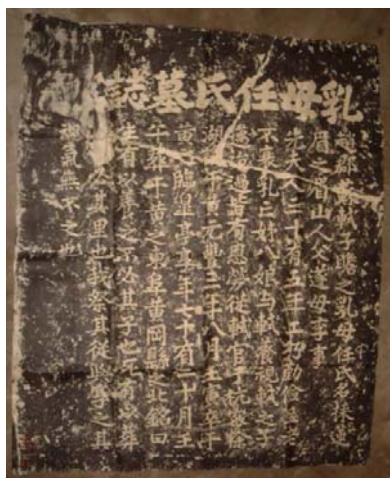 乳母任氏墓誌
趙郡蘇軾子瞻之乳母任氏名採蓮
眉之眉山人父遂母李氏事
先夫人三十有五年工巧勤儉至老
不衰乳亡姊八娘與軾養視軾之子
邁迨過皆有恩勞從軾官于杭密徐
湖謫于黃元豐三年八月壬寅卒于
黃之臨皋亭享年七十有二十月壬
午葬于黃之東阜黃岡縣之北銘曰
生有以養之不必其子也死有以葬
之不必其里也我祭其從與享之其
魂氣無不之也